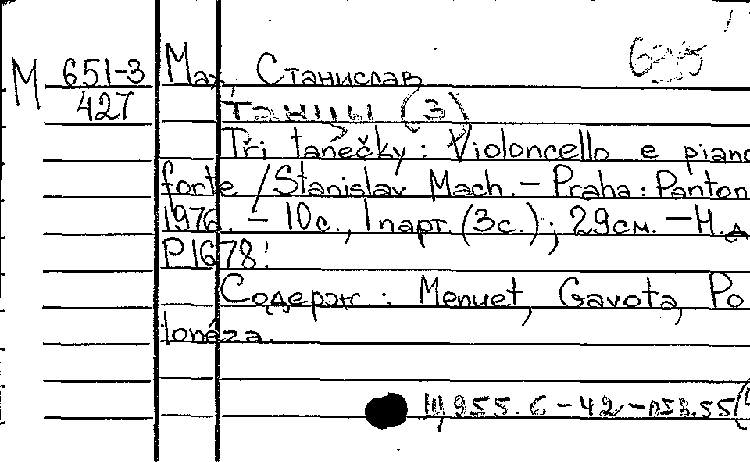 М 651-3 Мах, Станислав
427 Танцы (3)
Tři tanečky: Violoncello e piano
forte / Stanislav Mach. – Praha: Panton
1976. – 10с., 1 парт. (3с.); 29см. – Н.д
P1678!
Содерж.: Menuet, Gavota, Po
lonéza.
Щ955.6-42-